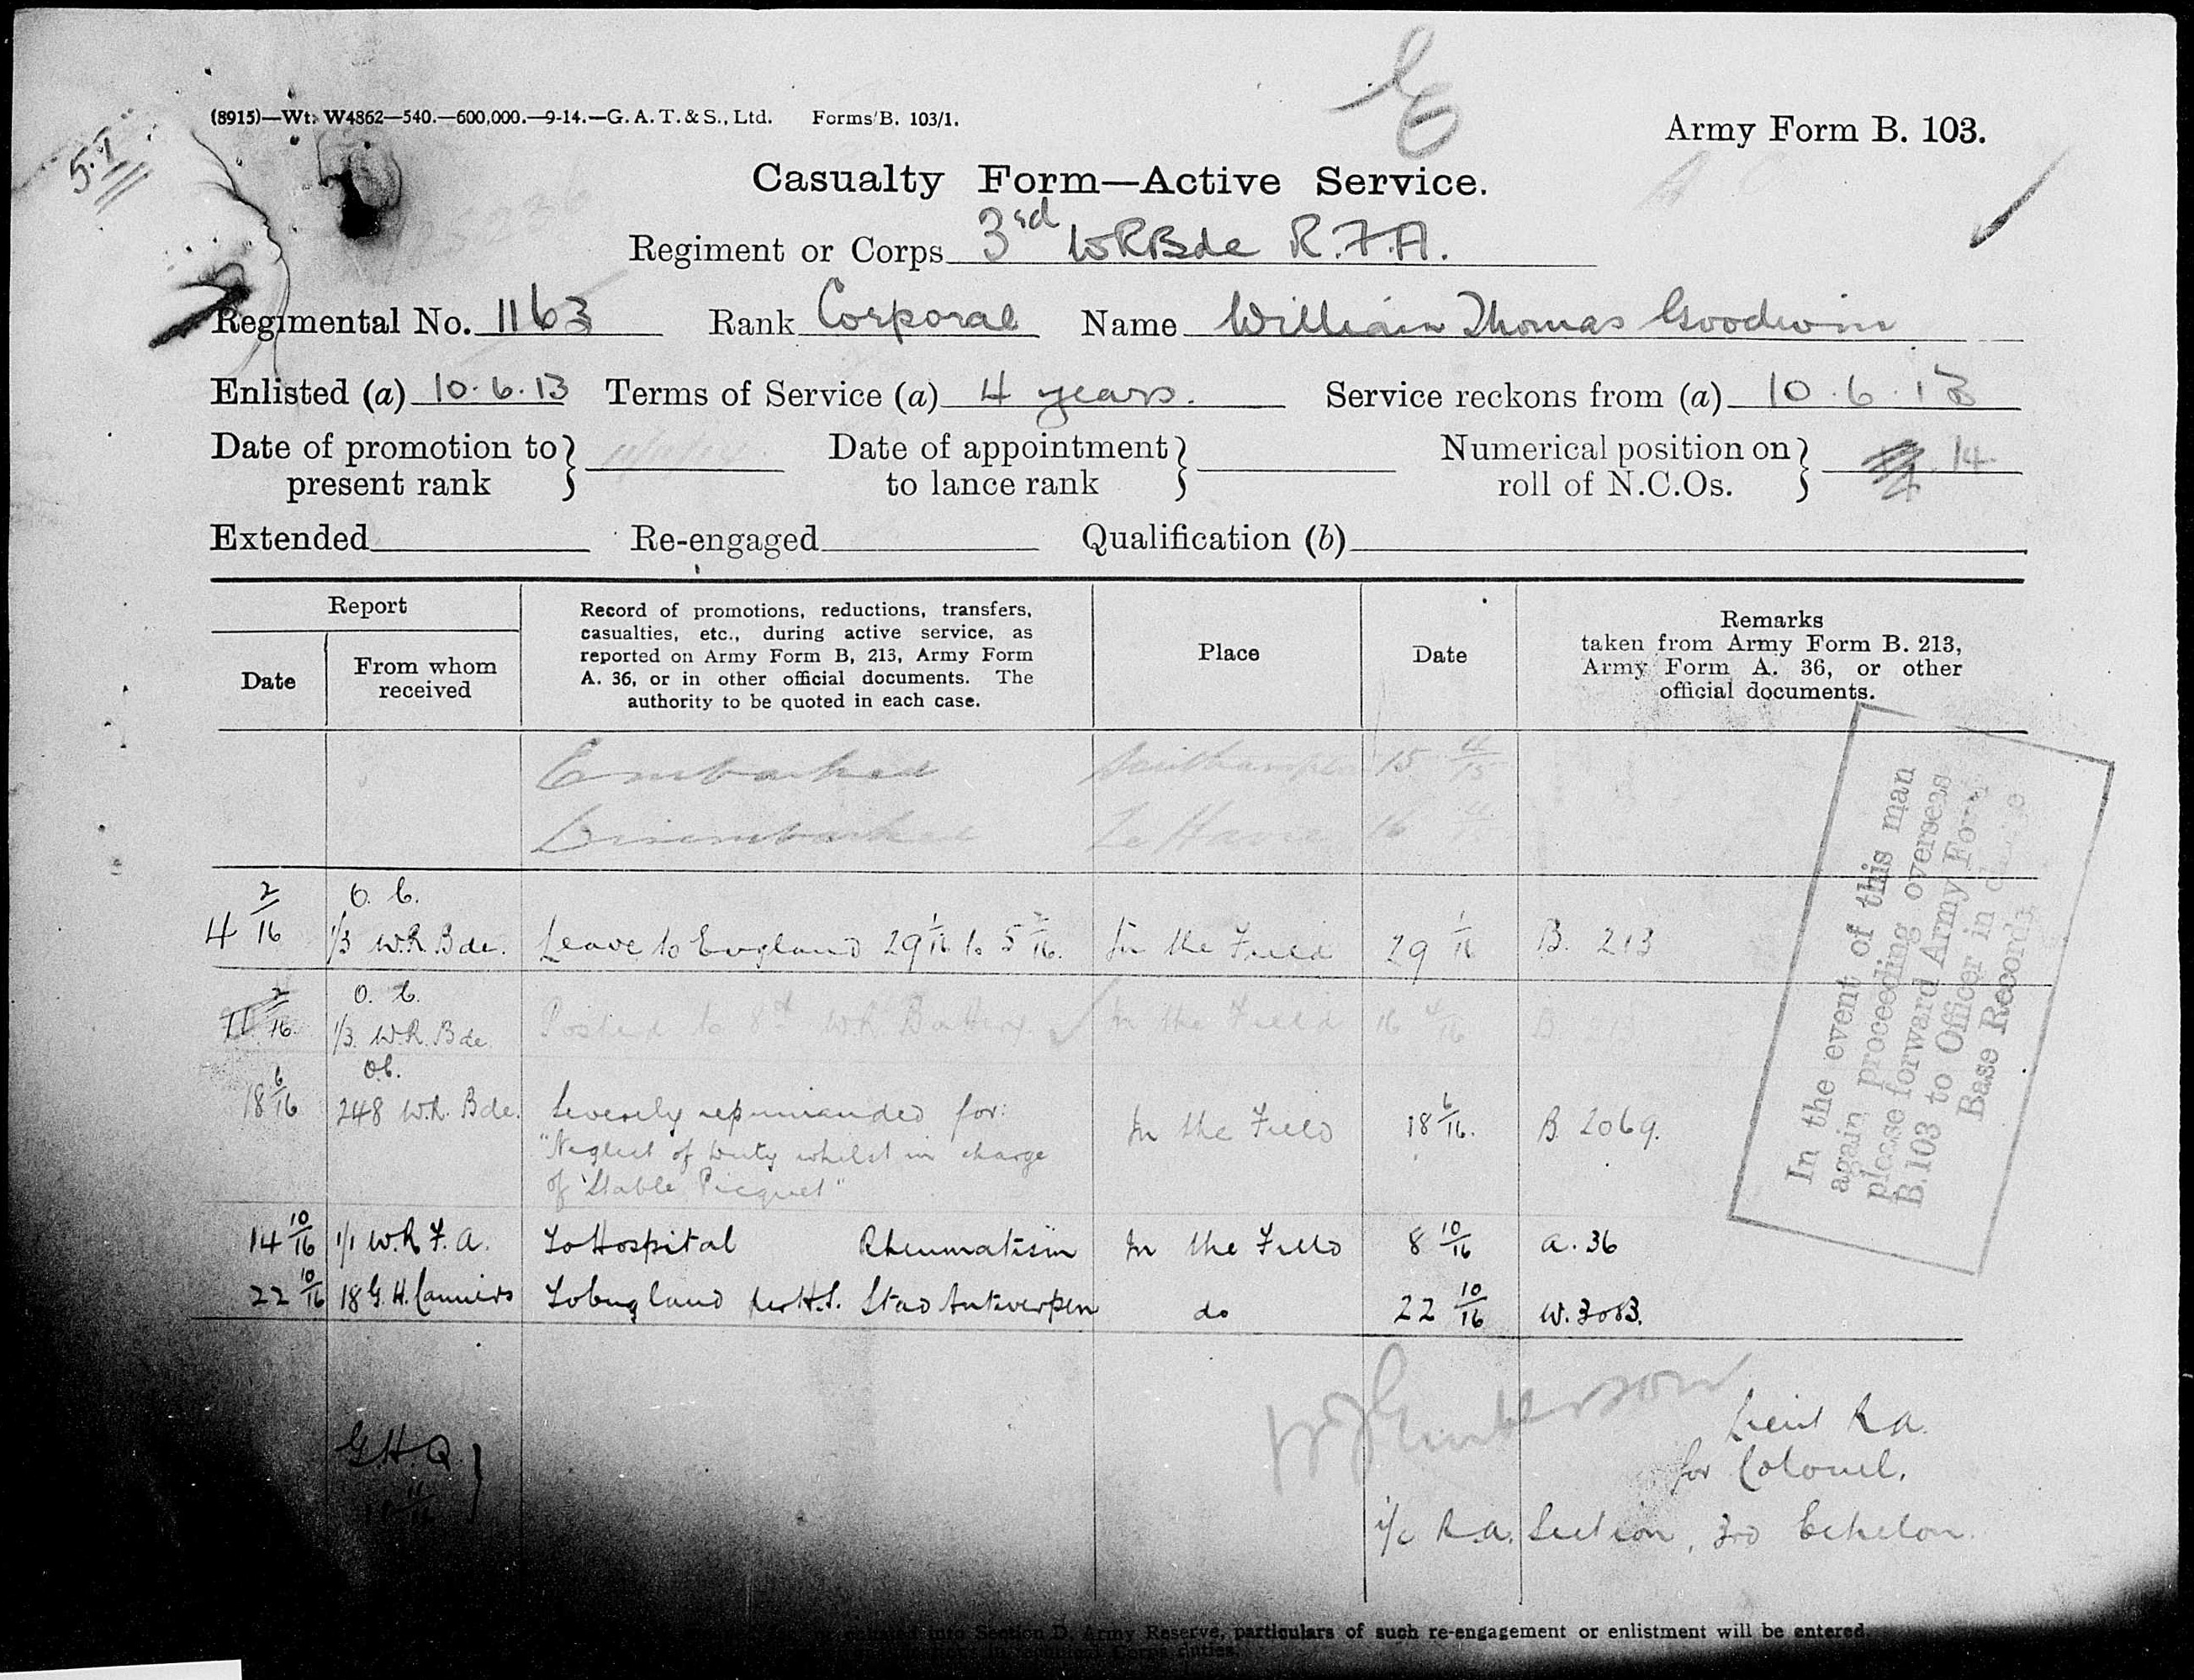 (8915)—Wt. W4862—540.—600,000.—9-14.—G. A. T. & S., Ltd. Forms/B. 103/1.
Army Form B. 103.
Casualty Form—Active Service.
Regiment or Corps 3rd WRBde R.F.A.
Regimental No. 1163 Rank Corporal Name William Thomas Goodwin
Enlisted (a) 10.6.13 Terms of Service (a) 4 years. Service reckons from (a) 10.6.13
Date of promotion to present rank } Date of appointment to lance rank } Numerical position on roll of N.C.Os. } 14
Extended Re-engaged Qualification (b)
Report
Date
From whom received
Record of promotions, reductions, transfers,
casualties, etc., during active service, as
reported on Army Form B, 213, Army Form
A. 36, or in other official documents. The
authority to be quoted in each case.
Place
Date
Remarks
taken from Army Form B. 213,
Army Form A. 36, or other
official documents.
Embarked Southampton 15 4/15
Disembarked Le Havre 16
4 2/16 O. C. 1/3 W.R. Bde. Leave to England 29 1/16 to 5 2/16. In the Field 29 1/16 B. 213
11 2/16 O. C. 1/3 W.R. Bde Posted to 8th WR Battery In the Field 16 B 213
18 6/16 O.C. 248 W.R. Bde. Severely reprimanded for: In the Field 18 6/16. B 2069.
"Neglect of Duty whilst in charge
of Stable Picquet"
14 10/16 1/1 W.R F. A. To Hospital Rheumatism In the Field 8 10/16 A. 36
22 10/16 18 G. H. Camiers To England per H.S. Stad Antwerpen do 22 10/16 W. 3083.
In the event of this man
again proceeding overseas
please forward Army Form
B.103 to Officer in charge
Base Records
G.H.Q. }
Lieut R.A.
for Colonel.
i/c R.A. Section, 3rd Echelon.
into Section D, Army Reserve, particulars of such re-engagement or enlistment will be entered.
duties.